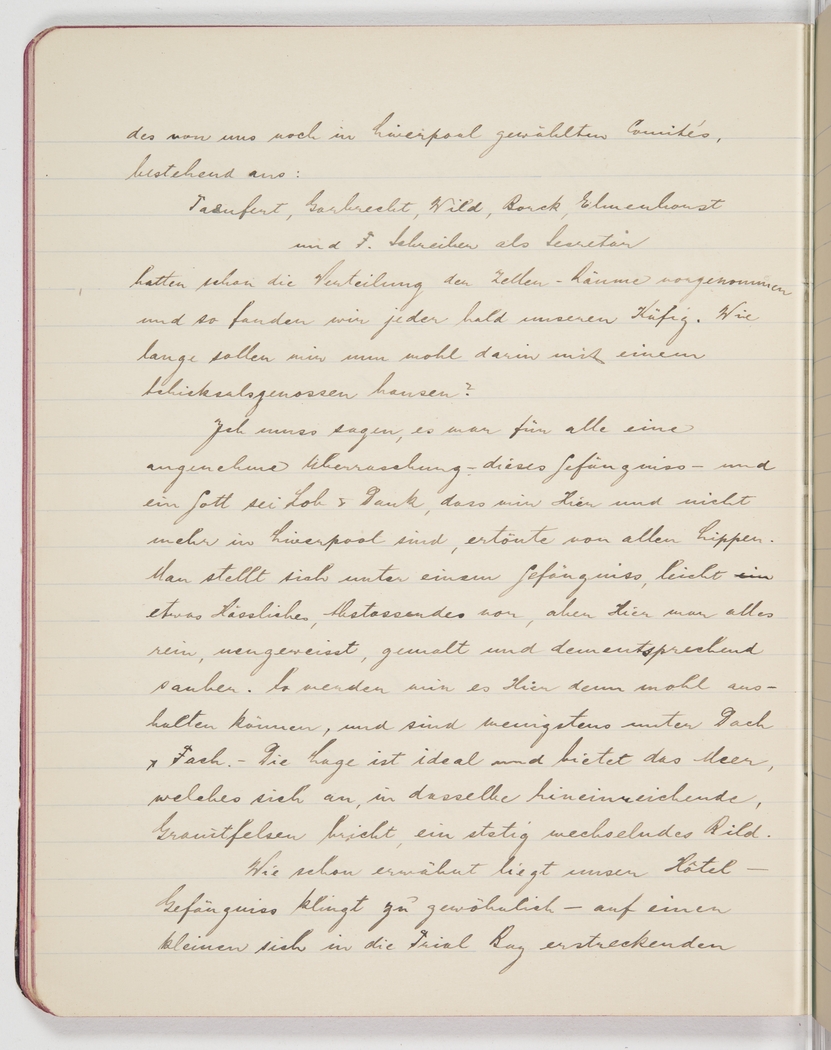 des von uns noch in Liverpool gewählten Comités,
bestehend aus:
Taeufert, Garbrecht, Wild, Borck, Elmenhorst
und F. Schreiber als Secretär
hatten schon die Verteilung der Zellen-Räume vorgenommen
und so fanden wir jeder bald unseren Käfig. Wie
lange sollen wir nun wohl darin mit einem
Schicksalsgenossen hausen?
Ich muss sagen, es war für alle eine
angenehme Überraschung - dieses Gefängniss - und
ein Gott sei Lob & Dank, dass wir Hier und nicht
mehr in Liverpool sind, ertönte von allen Lippen.
Man stellt sich unter einem Gefängniss, leicht ein
etwas Hässliches, Abstossendes vor, aber Hier war alles
rein, neugeweisst, gemalt und dementsprechend
sauber. So werden wir es Hier denn wohl aus-
halten können, und sind wenigstens unter Dach
& Fach. - Die Lage ist ideal und bietet das Meer,
welches sich an, in dasselbe hineinreichende,
Granitfelsen bricht, ein stetig wechselndes Bild.
Wie schon erwähnt liegt unser Hôtel —
Gefängniss klingt zu gewöhnlich — auf einen
kleinen sich in die Trial Bay erstreckenden